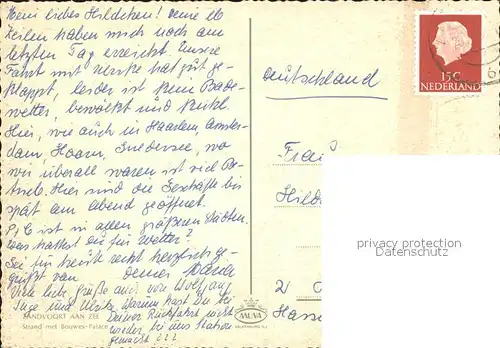 Mein liebes Hildchen! Deine lb
Zeilen haben mich noch am
letzten Tag erreicht. Unsere
Fahrt mit hat gut ge-
klappt, leider ist kein Bade-
wetter, bewölkt und kühl.
Hier, wie auch in Haarlem, Amster-
dam, Hoorn, Zuidersee, wo
wir überall waren ist viel Be-
trieb. Hier sind die Geschäfte bis
spät am Abend geöffnet.
P+C ist in allen größeren Städten.
Was hattest du für Wetter?
Sei für heute recht herzlich ge-
grüßt von deiner Maria
Viele liebe Grüße auch von Wolfgang
Inge und Ulrike. Warum hast du bei
Deiner Rückfahrt nicht
wieder bei uns Station
gemacht ???
ZANDVOORT AAN ZEE
Strand met Bouwes-Palace
MUVA
VALKENBURG (L.)
Deutschland
15 C
NEDERLAND
Frau
Hild
2
Hasse
privacy protection
Datenschutz